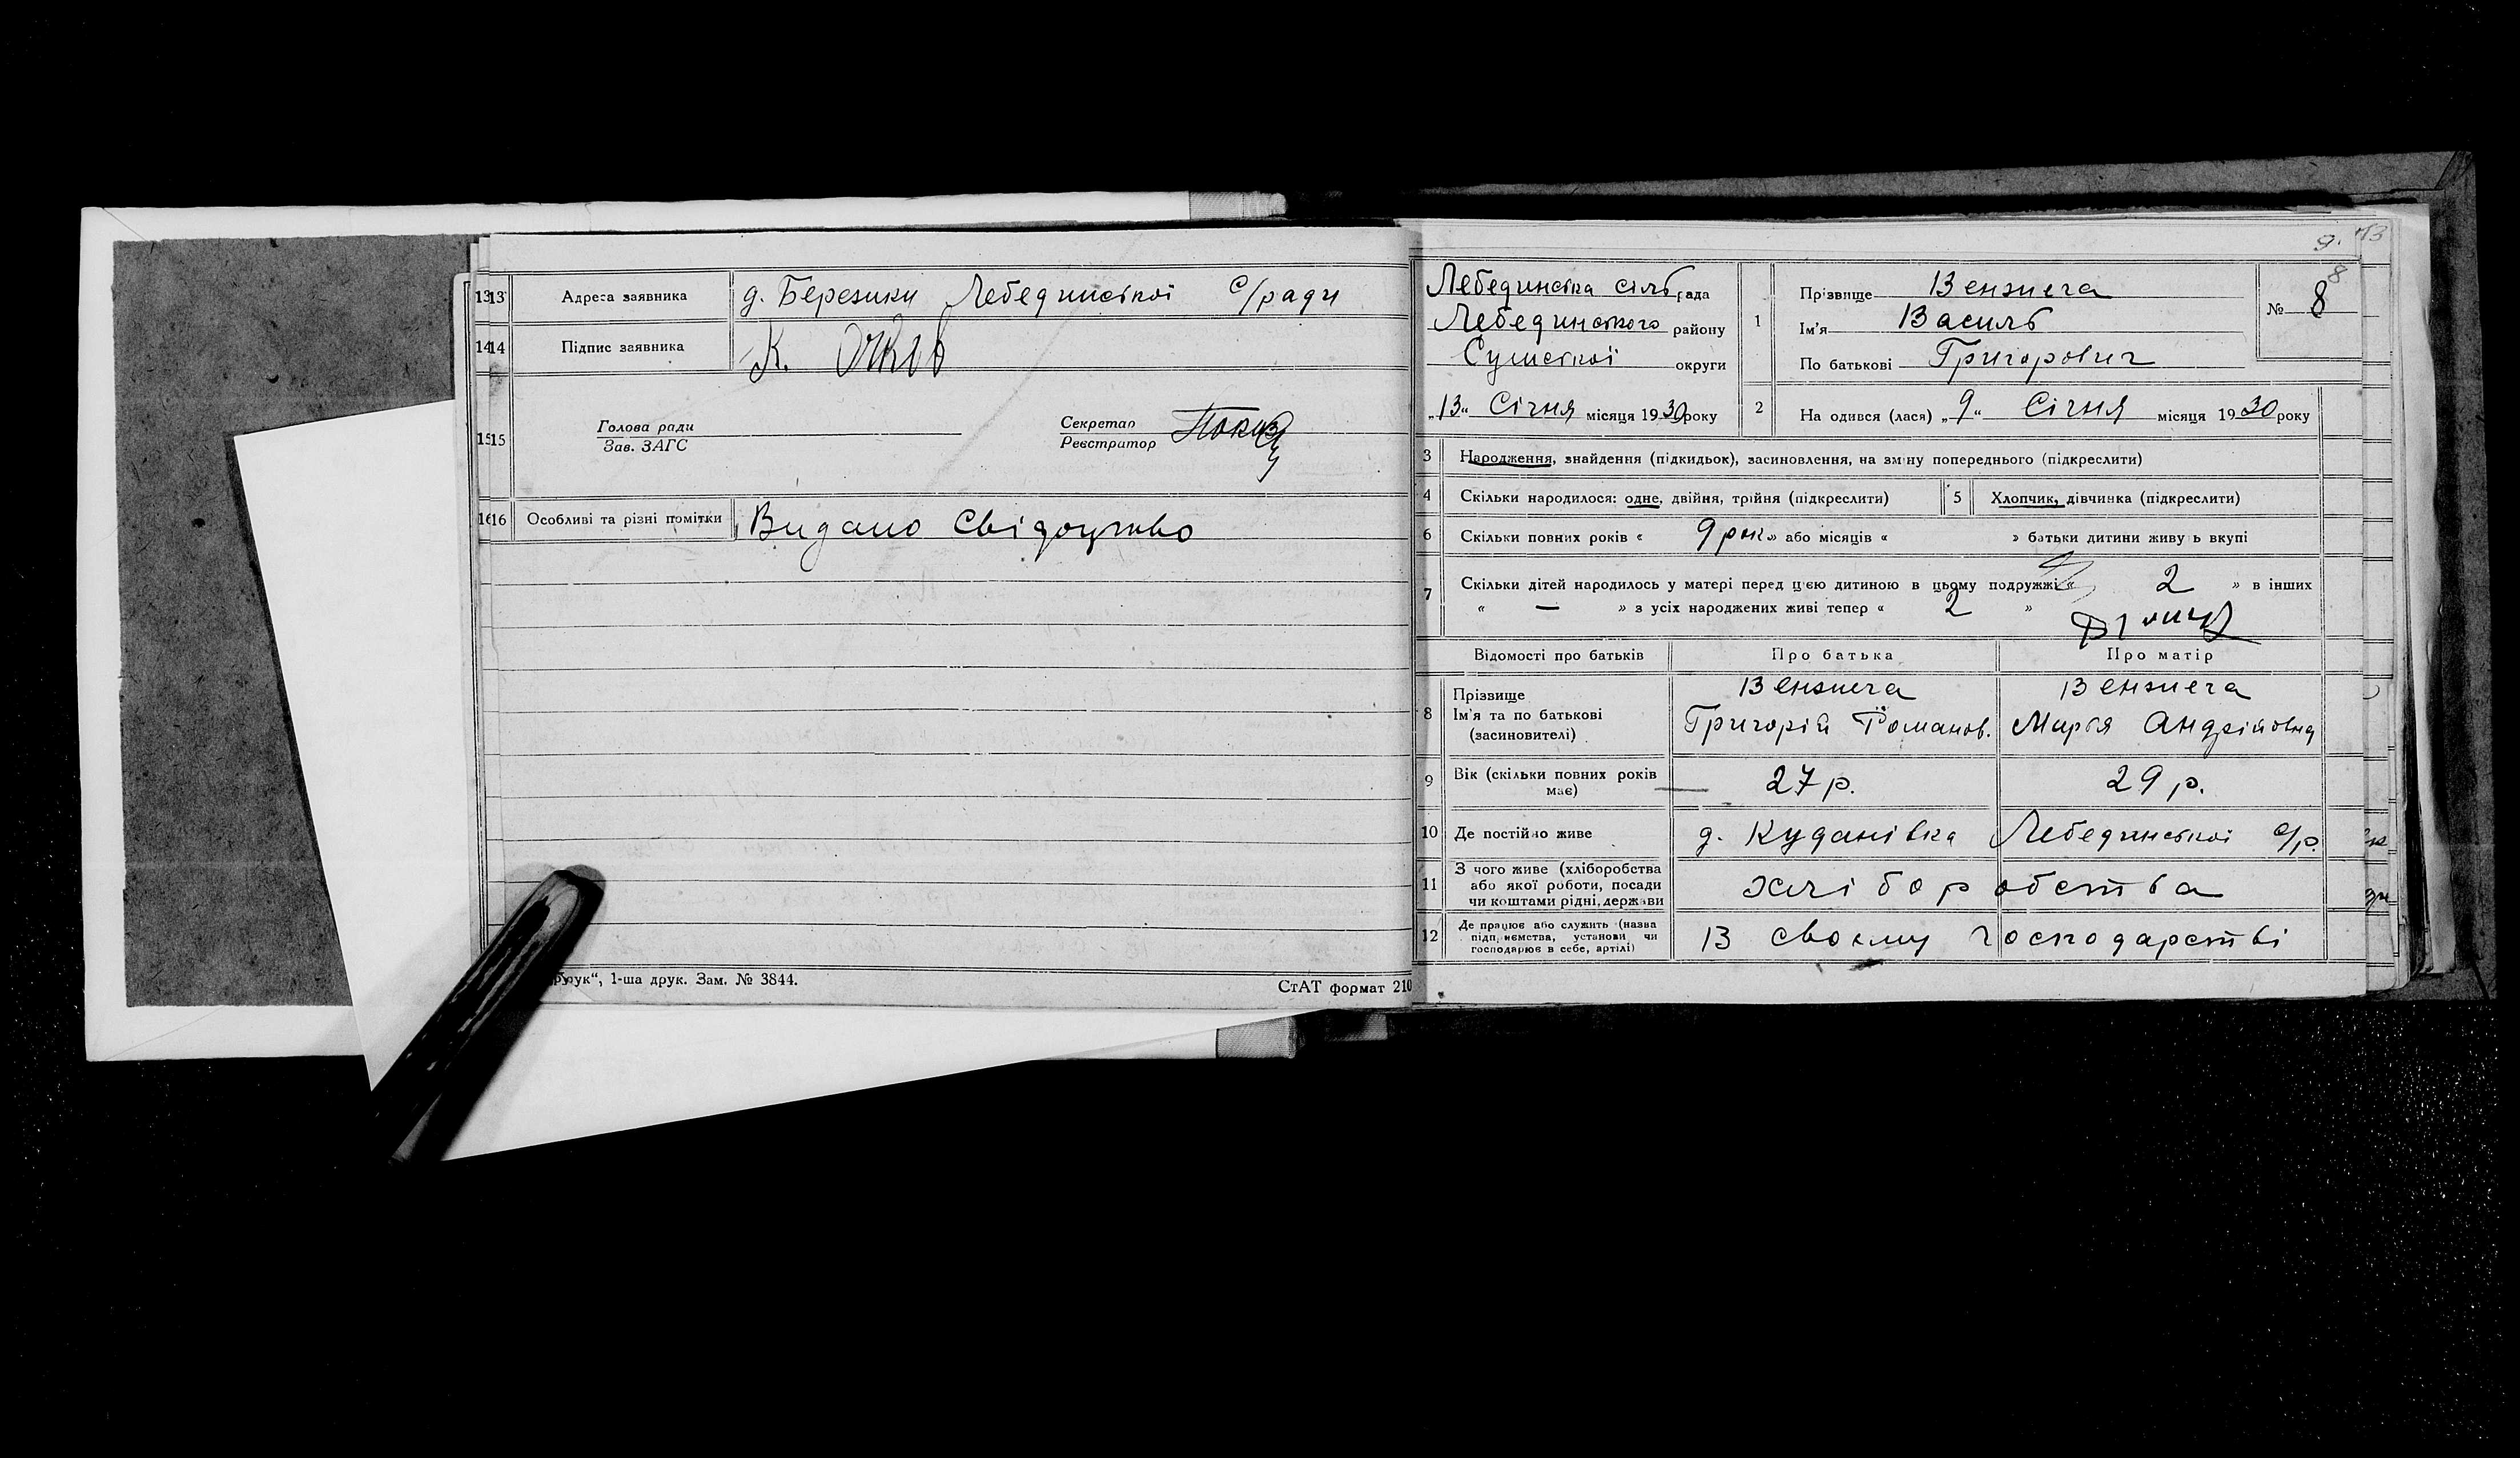 1313 Адреса заявника д. Березики Лебединської с/ради
1414 Підпис заявника К.
Голова ради
Зав. ЗАГС
Секретар
Реєстратор
1515
1616 Особливі та різні помітки Видано Свідоцтво
рук“, 1-ша друк. Зам. № 3844.
СтАТ формат 210
9. 13
8
Лебединська сільрада
Лебединського району
Сумської округи
„13“ Січня місяця 1930року
1 Прізвище Вензнега
Ім'я Василь
По батькові Григорович
№ 8
2 На одився (лася) „9“ Січня місяця 1930року
3 Народження, знайдення (підкидьок), засиновлення, на зміну попереднього (підкреслити)
4 Скільки народилося: одне, двійня, трійня (підкреслити) 5 Хлопчик, дівчинка (підкреслити)
6 Скільки повних років « 9 рок » або місяців « » батьки дитини живу ь вкупі
7 Скільки дітей народилось у матері перед цією дитиною в цьому подружжі « 2 » в інших
« — » з усіх народжених живі тепер « 2 »
Відомості про батьків Про батька Про матір
8 Прізвище Вензнега Вензнега
Ім'я та по батькові Григорій Романов. Мар'я Андрійовна
(засиновителі)
9 Вік (скільки повних років має) 27 р. 29 р.
10 Де постійно живе д. Куданівка Лебединської с/р.
11 З чого живе (хліборобства або якої роботи, посади чи коштами рідні, держави хліборобства
12 Де працює або служить (назва підприємства, установи чи господарює в себе, артілі) В своєму господарстві